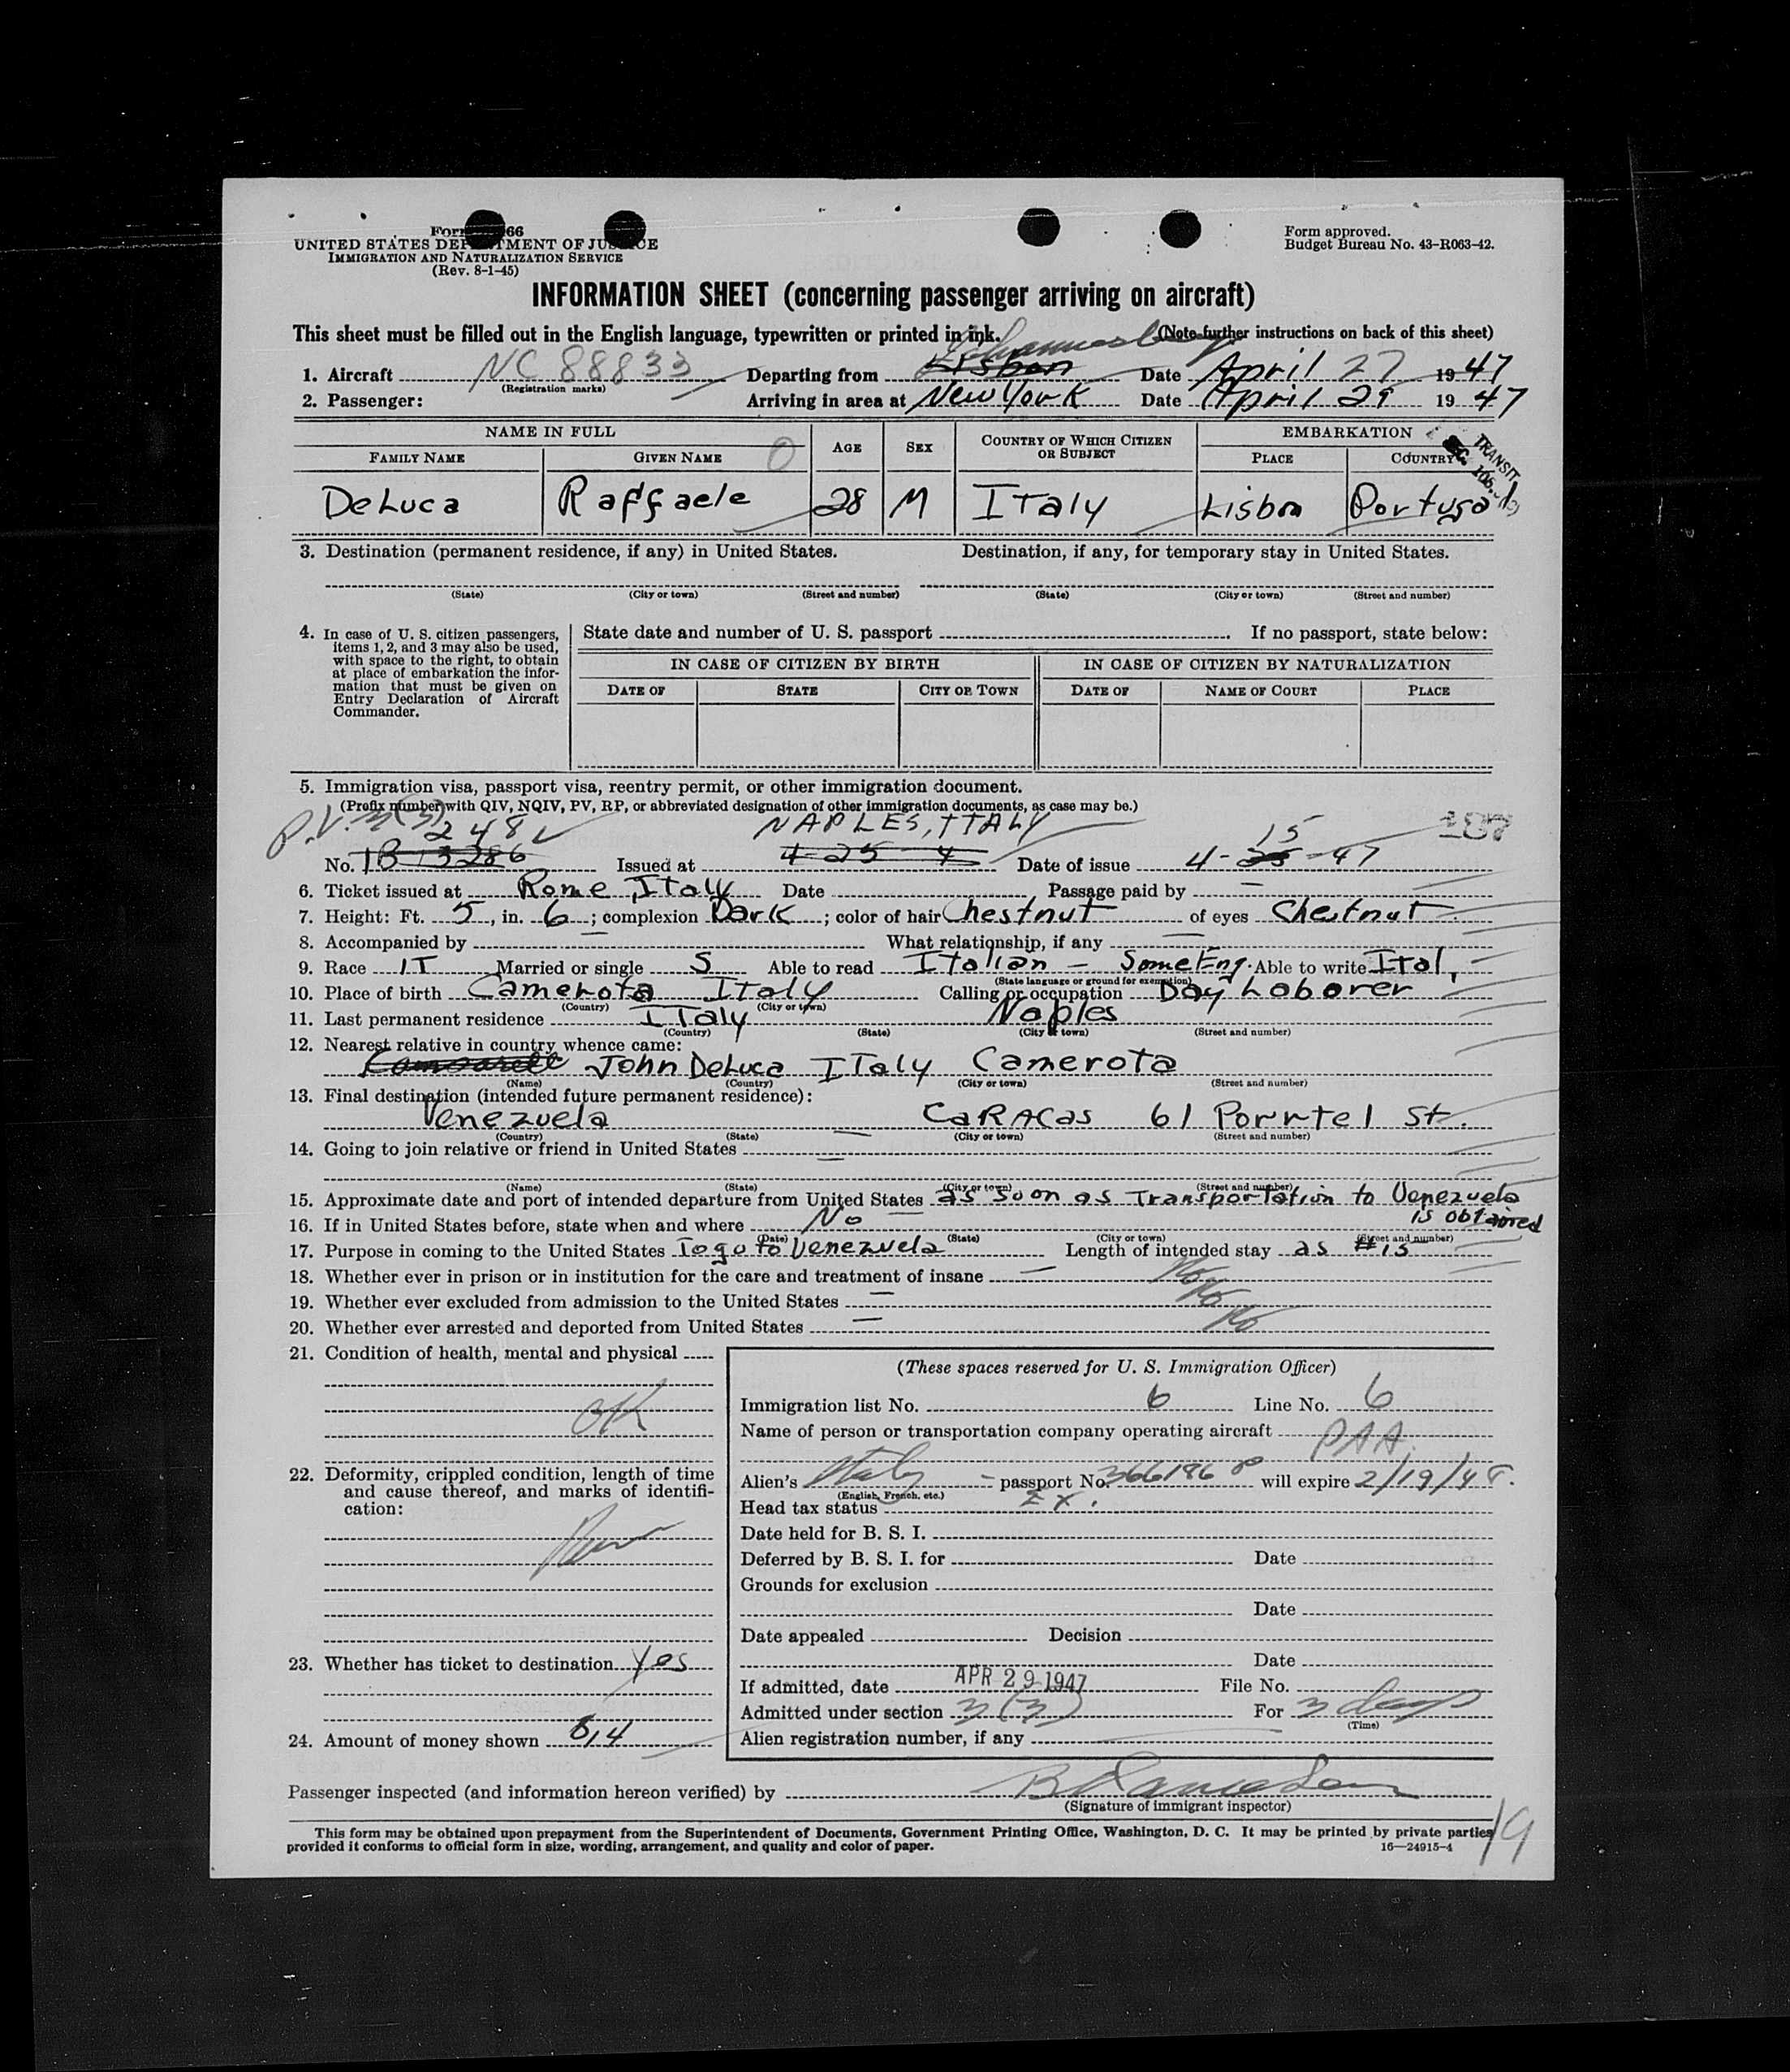 Form 66
UNITED STATES DEPARTMENT OF JUSTICE
IMMIGRATION AND NATURALIZATION SERVICE
(Rev. 8-1-45)
Form approved.
Budget Bureau No. 43-R063-42.
INFORMATION SHEET (concerning passenger arriving on aircraft)
This sheet must be filled out in the English language, typewritten or printed in ink. (Note further instructions on back of this sheet)
Johannesburg
1. Aircraft NC 88833 Departing from Lisbon Date April 27 1947
(Registration marks)
2. Passenger: Arriving in area at New York Date April 29 1947
NAME IN FULL AGE SEX COUNTRY OF WHICH CITIZEN OR SUBJECT EMBARKATION
FAMILY NAME GIVEN NAME PLACE COUNTRY
TRANSIT
DeLuca Raffaele 28 M ITaly Lisbon Portugal
3. Destination (permanent residence, if any) in United States. Destination, if any, for temporary stay in United States.
(State) (City or town) (Street and number) (State) (City or town) (Street and number)
4. In case of U. S. citizen passengers, items 1, 2, and 3 may also be used, with space to the right, to obtain at place of embarkation the information that must be given on Entry Declaration of Aircraft Commander.
State date and number of U. S. passport If no passport, state below:
IN CASE OF CITIZEN BY BIRTH IN CASE OF CITIZEN BY NATURALIZATION
DATE OF STATE CITY OR TOWN DATE OF NAME OF COURT PLACE
5. Immigration visa, passport visa, reentry permit, or other immigration document.
(Prefix number with QIV, NQIV, PV, RP, or abbreviated designation of other immigration documents, as case may be.)
P.V. 3(3) 248 NAPLES, ITALY 15 187
No. 1B 13286 Issued at 4-25-4 Date of issue 4-25-47
6. Ticket issued at Rome, Italy Date Passage paid by —
7. Height: Ft. 5, in. 6; complexion Dark; color of hair Chestnut of eyes Chestnut
8. Accompanied by — What relationship, if any —
9. Race IT Married or single S Able to read Italian - Some Eng. Able to write Ital,
(State language or ground for exemption)
10. Place of birth Camerota Italy Calling or occupation Day Laborer
(Country) (City or town)
11. Last permanent residence ITaly Naples
(Country) (State) (City or town) (Street and number)
12. Nearest relative in country whence came:
John DeLuca ITaly Camerota
(Name) (Country) (City or town) (Street and number)
13. Final destination (intended future permanent residence):
Venezuela — CaRACas 61 Porrtel St.
(Country) (State) (City or town) (Street and number)
14. Going to join relative or friend in United States —
(Name) (State) (City or town) (Street and number)
15. Approximate date and port of intended departure from United States as soon as Transportation to Venezuela
is obtained
16. If in United States before, state when and where No
(Date) (State) (City or town) (Street and number)
17. Purpose in coming to the United States To go to Venezuela Length of intended stay as #15
18. Whether ever in prison or in institution for the care and treatment of insane — No
19. Whether ever excluded from admission to the United States — No
20. Whether ever arrested and deported from United States — No
21. Condition of health, mental and physical
OK
22. Deformity, crippled condition, length of time and cause thereof, and marks of identification:
23. Whether has ticket to destination Yes
24. Amount of money shown 614
(These spaces reserved for U. S. Immigration Officer)
Immigration list No. 6 Line No. 6
Name of person or transportation company operating aircraft PAA
Alien's Italy - passport No. 366196 P will expire 2/19/48.
(English, French, etc.)
Head tax status Ex.
Date held for B. S. I.
Deferred by B. S. I. for Date
Grounds for exclusion
Date
Date appealed Decision
Date
If admitted, date APR 29 1947 File No.
Admitted under section 3(3) For 3 days
(Time)
Alien registration number, if any
Passenger inspected (and information hereon verified) by
(Signature of immigrant inspector)
This form may be obtained upon prepayment from the Superintendent of Documents, Government Printing Office, Washington, D. C. It may be printed by private parties
provided it conforms to official form in size, wording, arrangement, and quality and color of paper. 16—24915-4
19